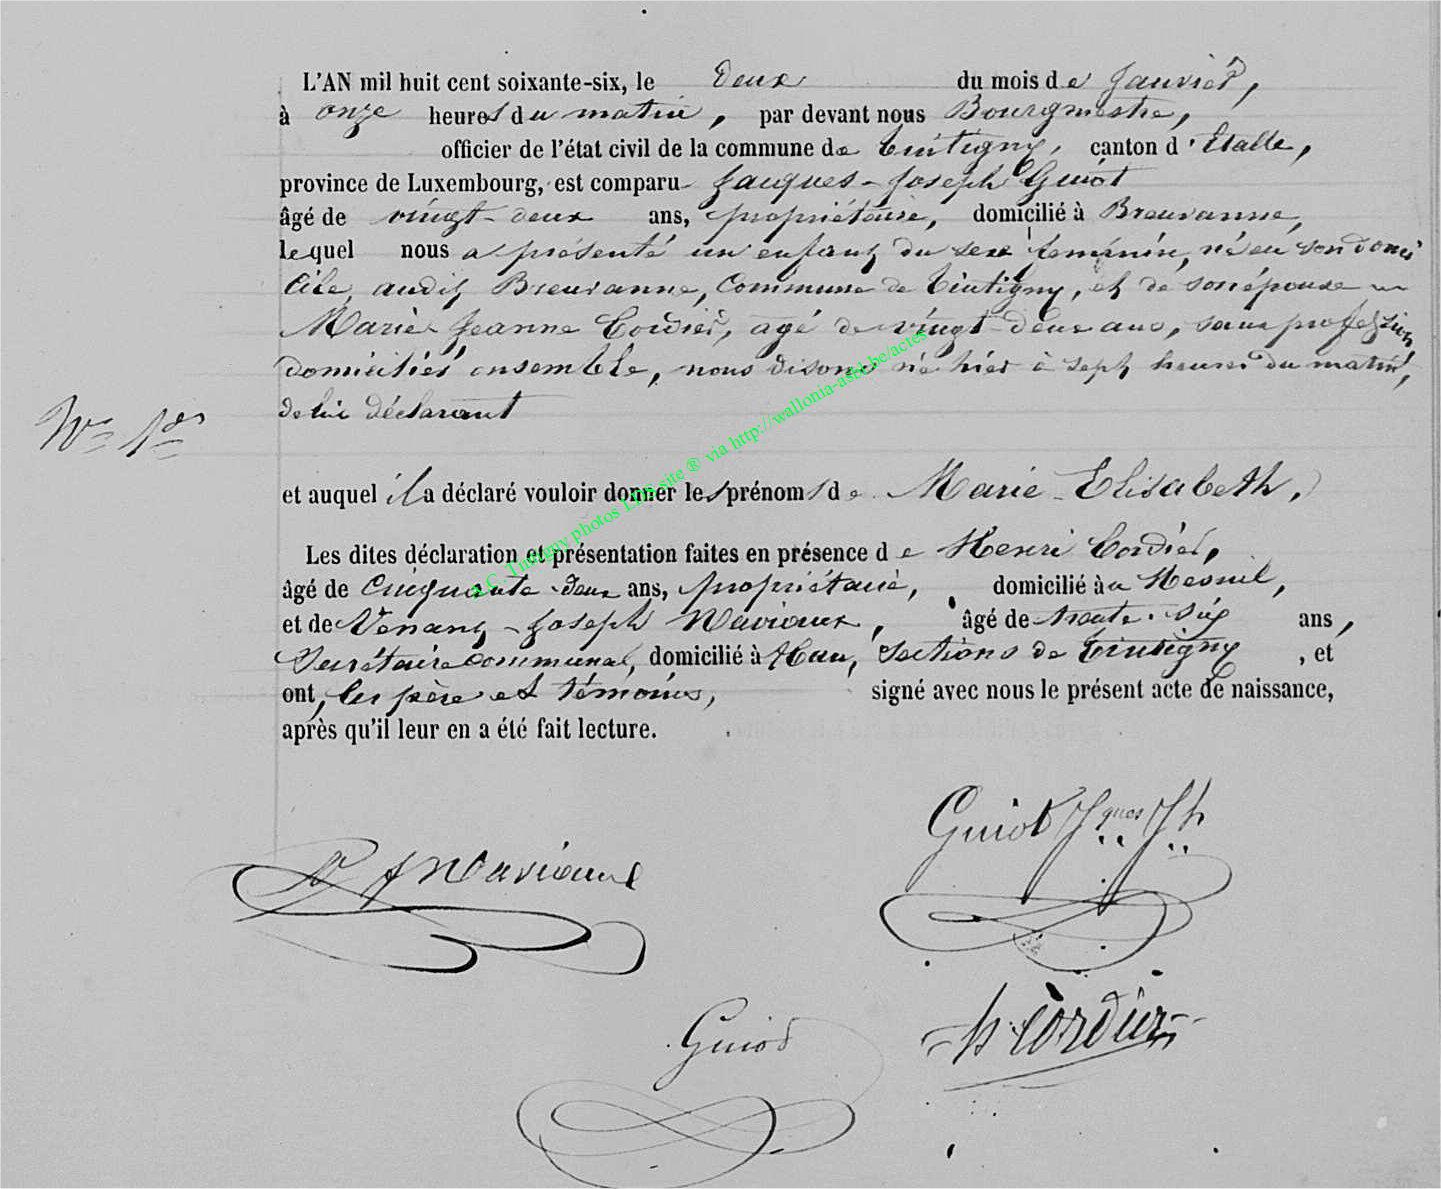 L'AN mil huit cent soixante-six, le deux du mois de Janvier,
à onze heures du matin, par devant nous Bourgmestre,
officier de l'état civil de la commune de Tintigny, canton d'Etalle,
province de Luxembourg, est comparu Jacques-Joseph Guiot
âgé de vingt-deux ans, propriétaire, domicilié à Breuvanne,
lequel nous a présenté un enfant du sexe féminin, né en son domi
cile, audit Breuvanne, Commune de Tintigny, et de son épouse
Marie Jeanne Cordier, agé de vingt-deux ans, sans profession
domiciliés ensemble, nous disons né hier à sept heures du matin,
de lui déclarant
No 1er
et auquel il a déclaré vouloir donner les prénoms de Marie-Elisabeth.
Les dites déclaration et présentation faites en présence de Henri Cordier,
âgé de cinquante-deux ans, propriétaire, domicilié à Mesnil,
et de Venant-Joseph Naviaux, âgé de trente-six ans,
Secrétaire communal, domicilié à Han, sections de Tintigny, et
ont, les père et témoins, signé avec nous le présent acte de naissance,
après qu'il leur en a été fait lecture.
a.C. Tintigny photos LDS site ® via http://wallonia-asbl.be/actes
Guiot Jques Jh
V J Naviaux
Guiot
h Cordier